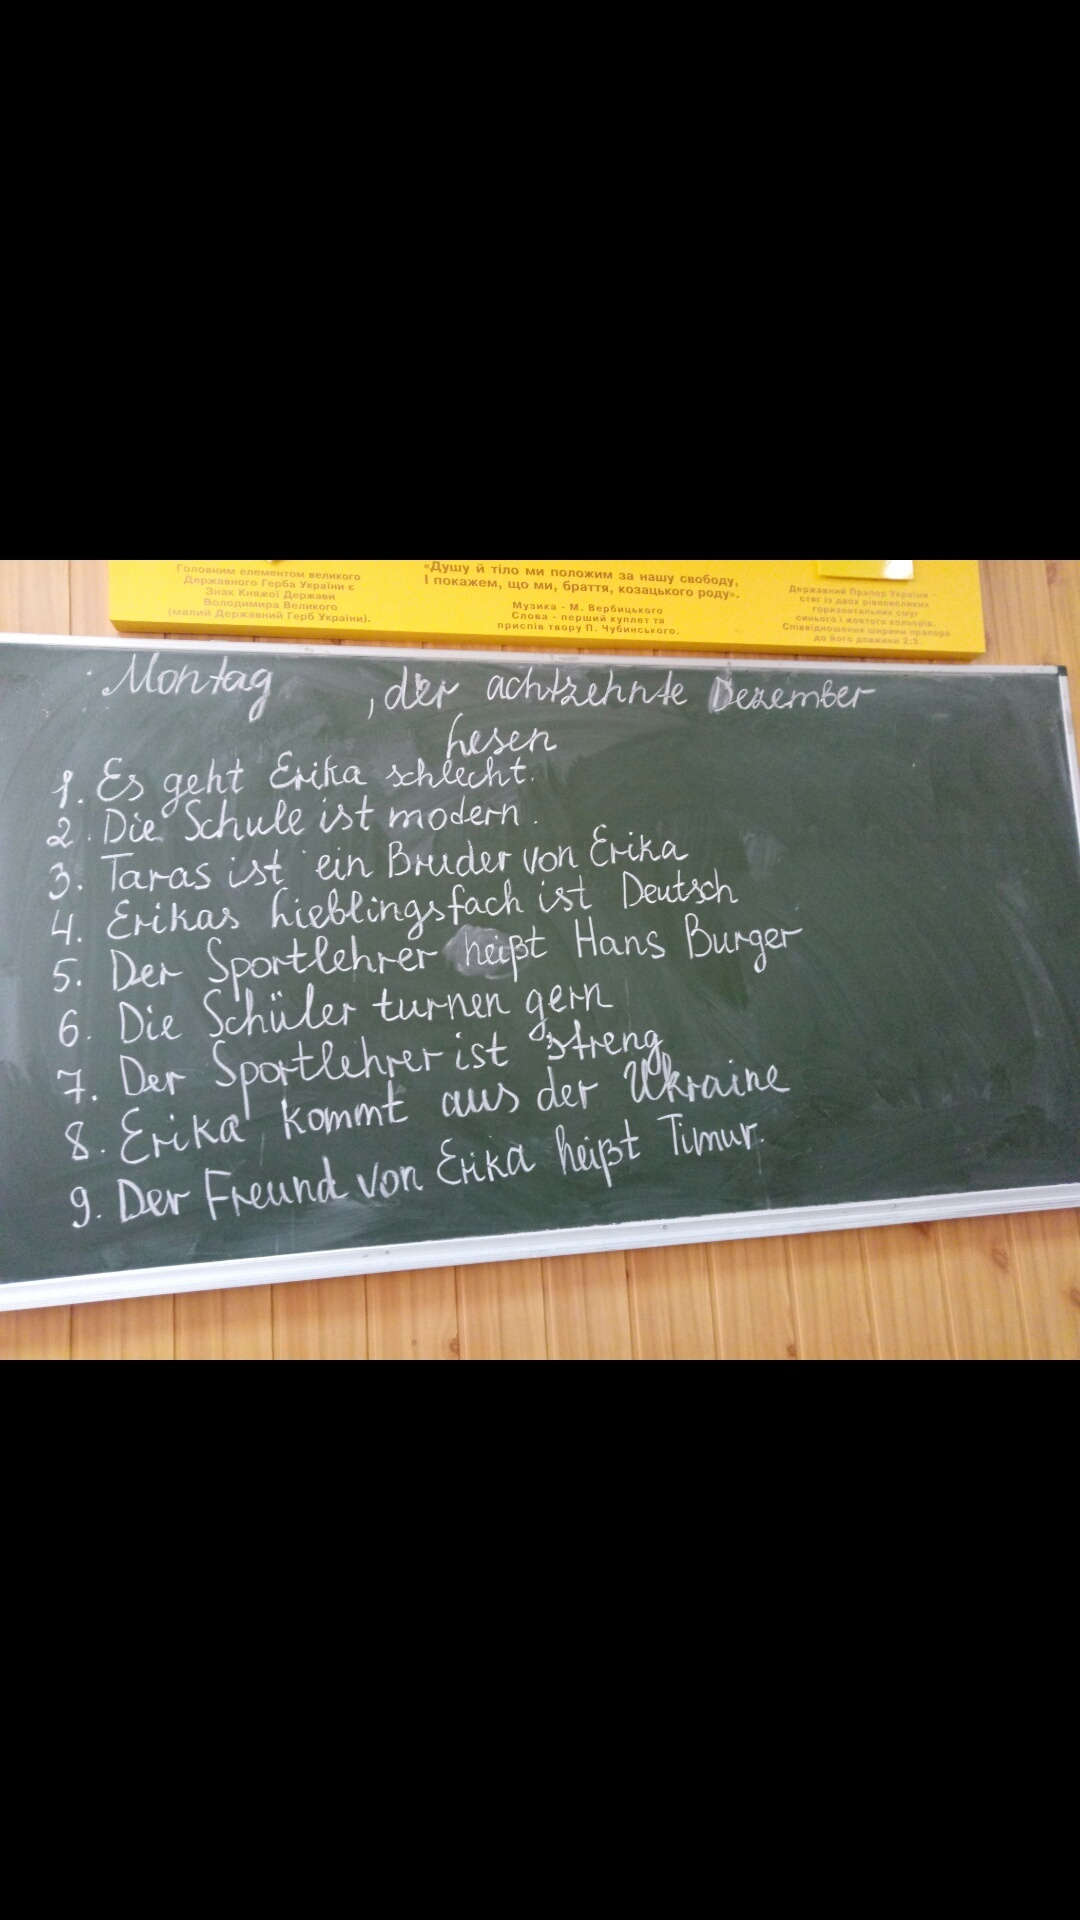 Головним елементом великого
Державного Герба України є
Знак Княжої Держави
Володимира Великого
(малий Державний Герб України).
"Душу й тіло ми положим за нашу свободу,
І покажем, що ми, браття, козацького роду».
Музика - М. Вербицького
Слова - перший куплет та
приспів твору П. Чубинського.
Державний Прапор України -
стяг із двох рівновеликих
горизонтальних смуг
синього і жовтого кольорів.
Співвідношення ширини прапора
до його довжини 2:3.
Montag , der achtzehnte Dezember
Lesen
1. Es geht Erika schlecht.
2. Die Schule ist modern.
3. Taras ist ein Bruder von Erika
4. Erikas Lieblingsfach ist Deutsch
5. Der Sportlehrer heißt Hans Burger
6. Die Schüler turnen gern
7. Der Sportlehrer ist streng
8. Erika kommt aus der Ukraine
9. Der Freund von Erika heißt Timur.